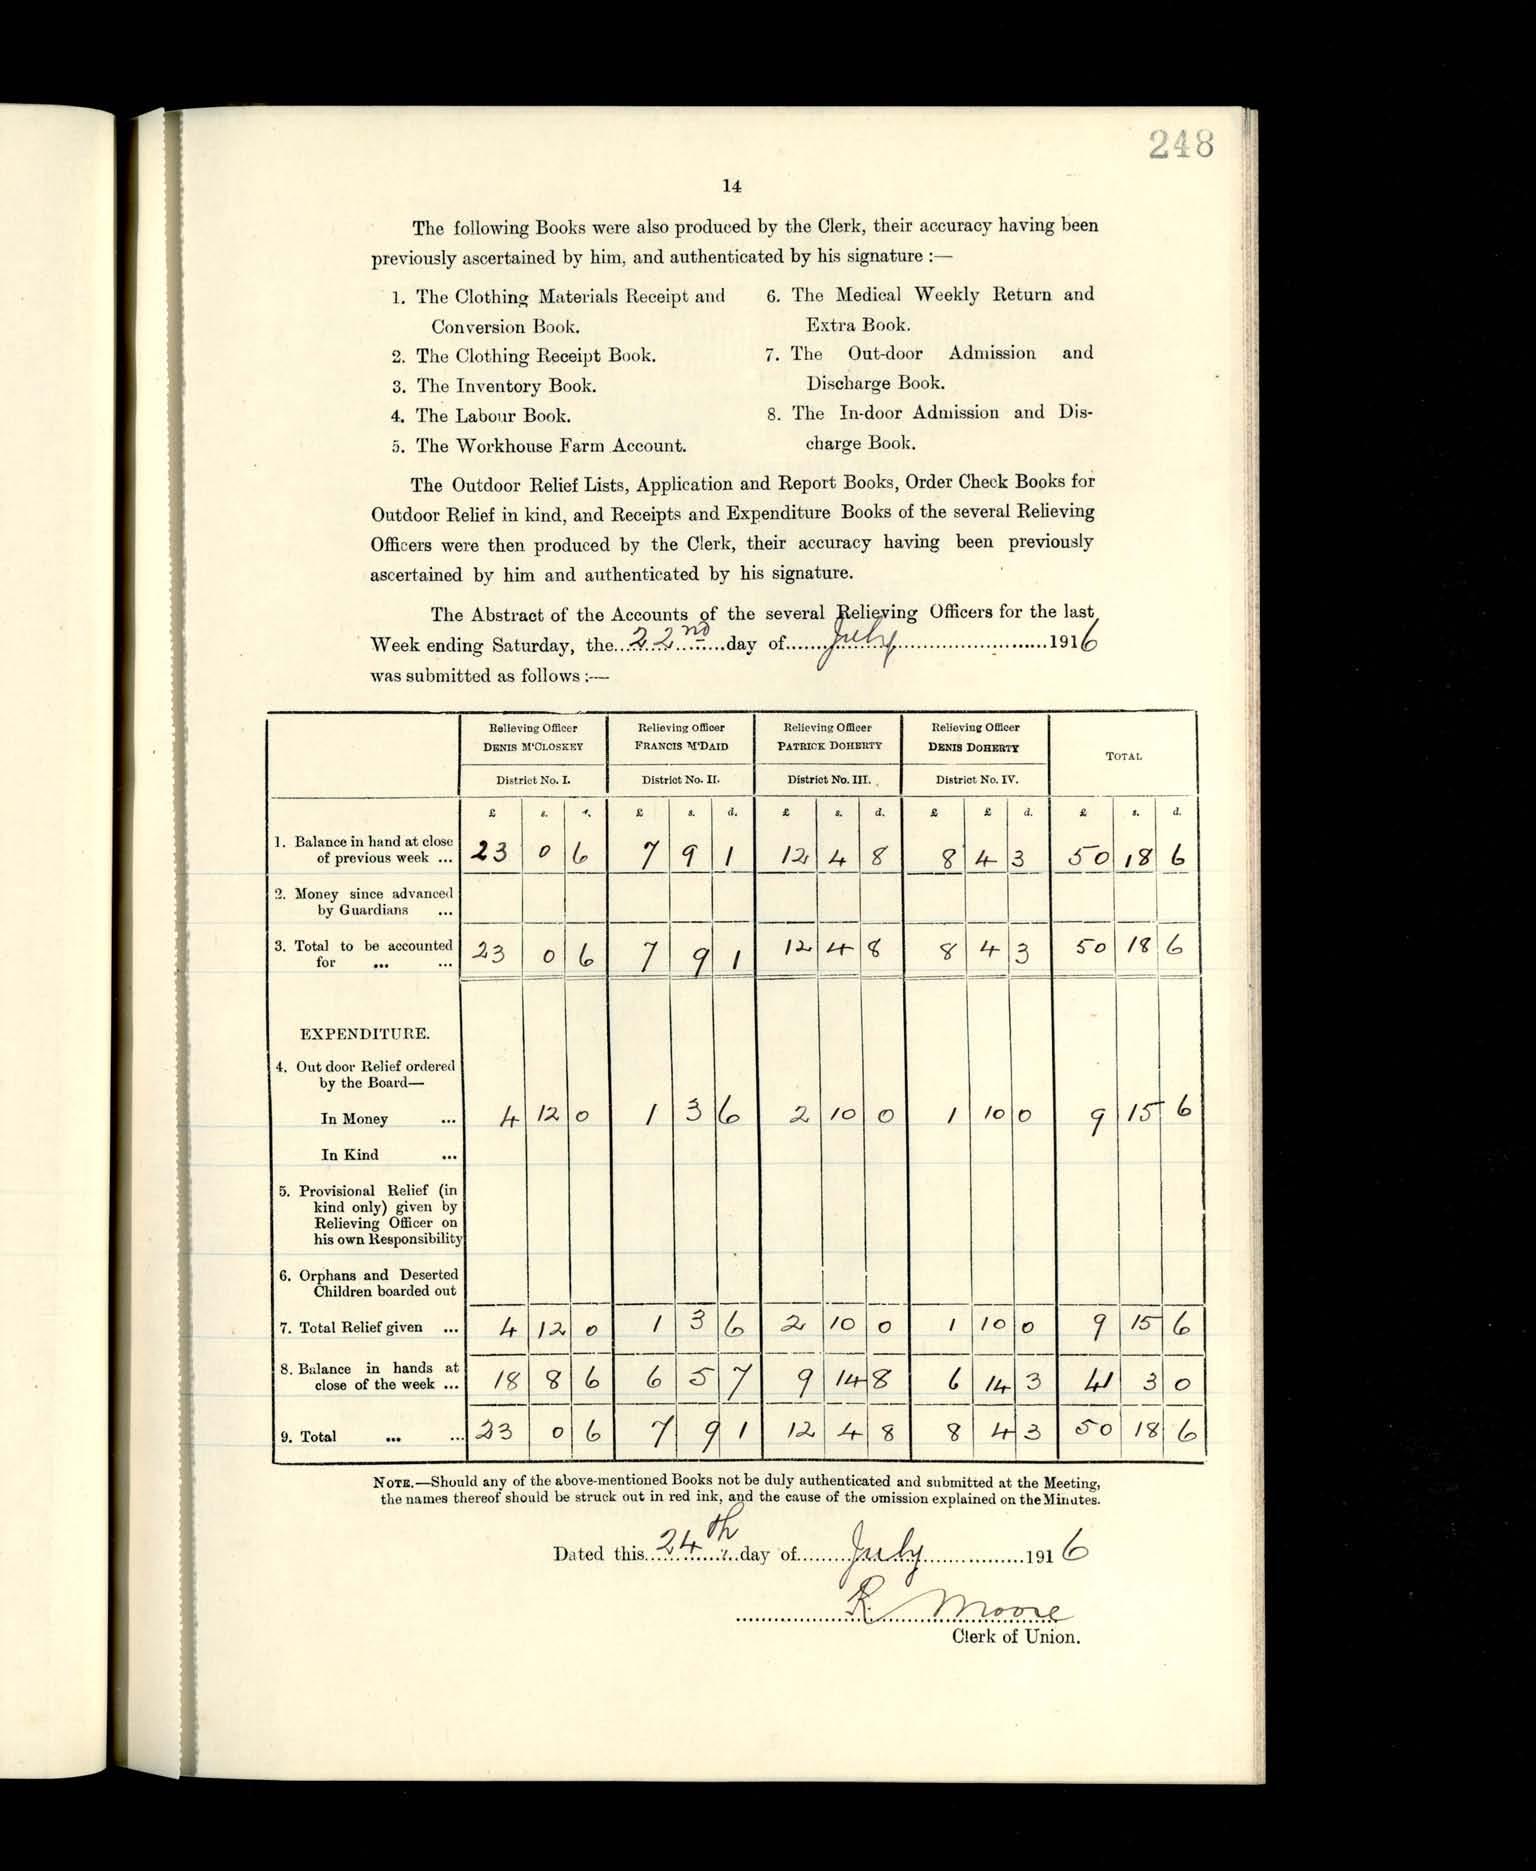 248
14
The following Books were also produced by the Clerk, their accuracy having been
previously ascertained by him, and authenticated by his signature :—
1. The Clothing Materials Receipt and
Conversion Book.
2. The Clothing Receipt Book.
3. The Inventory Book.
4. The Labour Book.
5. The Workhouse Farm Account.
6. The Medical Weekly Return and
Extra Book.
7. The Out-door Admission and
Discharge Book.
8. The In-door Admission and Dis-
charge Book.
The Outdoor Relief Lists, Application and Report Books, Order Check Books for
Outdoor Relief in kind, and Receipts and Expenditure Books of the several Relieving
Officers were then produced by the Clerk, their accuracy having been previously
ascertained by him and authenticated by his signature.
The Abstract of the Accounts of the several Relieving Officers for the last
Week ending Saturday, the 22nd day of July 1916
was submitted as follows :—
Relieving Officer Relieving Officer Relieving Officer Relieving Officer
DENIS M'CLOSKEY FRANCIS M'DAID PATRICK DOHERTY DENIS DOHERTY TOTAL
District No. I. District No. II. District No. III. District No. IV.
£ s. d. £ s. d. £ s. d. £ £ d. £ s. d.
1. Balance in hand at close
of previous week ... 23 0 6 7 9 1 12 4 8 8 4 3 50 18 6
2. Money since advanced
by Guardians ...
3. Total to be accounted
for ... ... 23 0 6 7 9 1 12 4 8 8 4 3 50 18 6
EXPENDITURE.
4. Out door Relief ordered
by the Board—
In Money ... 4 12 0 1 3 6 2 10 0 1 10 0 9 15 6
In Kind ...
5. Provisional Relief (in
kind only) given by
Relieving Officer on
his own Responsibility
6. Orphans and Deserted
Children boarded out
7. Total Relief given ... 4 12 0 1 3 6 2 10 0 1 10 0 9 15 6
8. Balance in hands at
close of the week ... 18 8 6 6 5 7 9 14 8 6 14 3 41 3 0
9. Total ... ... 23 0 6 7 9 1 12 4 8 8 4 3 50 18 6
NOTE.—Should any of the above-mentioned Books not be duly authenticated and submitted at the Meeting,
the names thereof should be struck out in red ink, and the cause of the omission explained on the Minutes.
Dated this 24th day of July 1916
R. Moore
Clerk of Union.